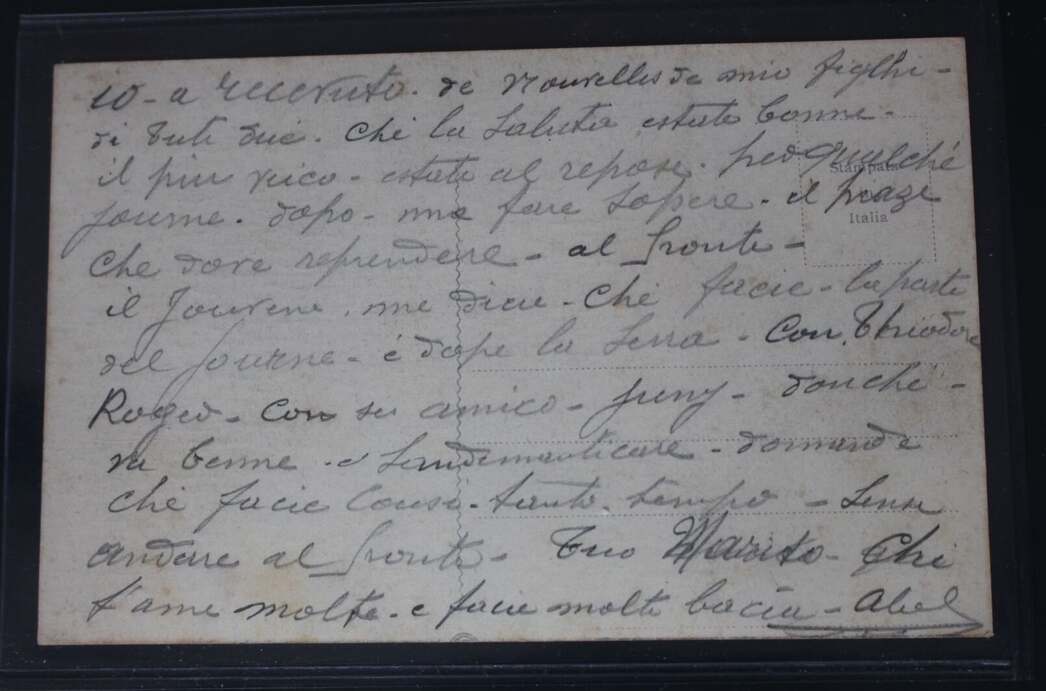 10 - a recevuto. de nouvelles de mio fighi -
di tuti due. che la saluta estate bonne -
il piu vico - estate al repose. per quelché
journe. dopo - ma fare sapere - el
che dove reprendere - al fronte -
il jouvene. me dice - che facie - la parte
del journe - é dope la serra - con. Theodore
Roger - con su amico - - donché -
va benne - e - domande
che facie cousi - tanto. tempo - senza
andare al fronte - tuo Marito - che
t'ame molte. e facie molti bacia - Abel
Stampata
Italia